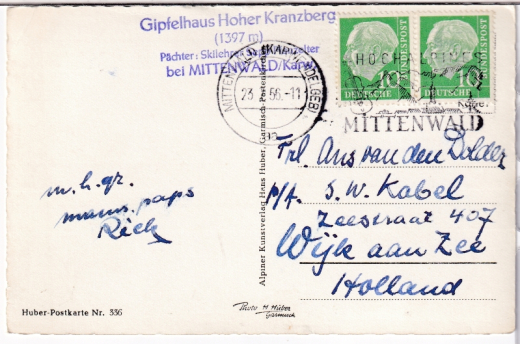 Gipfelhaus Hoher Kranzberg
(1397 m)
Pächter:
bei MITTENWALD/Karw.
MITTENWALD (KARWENDELGEB)
23. 56.-11
HOCHALPINES
10 DEUTSCHE BUNDESPOST
10 DEUTSCHE BUNDESPOST
MITTENWALD
m. h. gr.
mams. paps
Rick
Frl. Ans van den Dolder
p/A. S. W. Kabel
Zeestraat 407
Wijk aan Zee
Holland
Alpiner Kunstverlag Hans Huber, Garmisch-Partenkirchen
Huber-Postkarte Nr. 336
Photo H. Huber
Garmisch